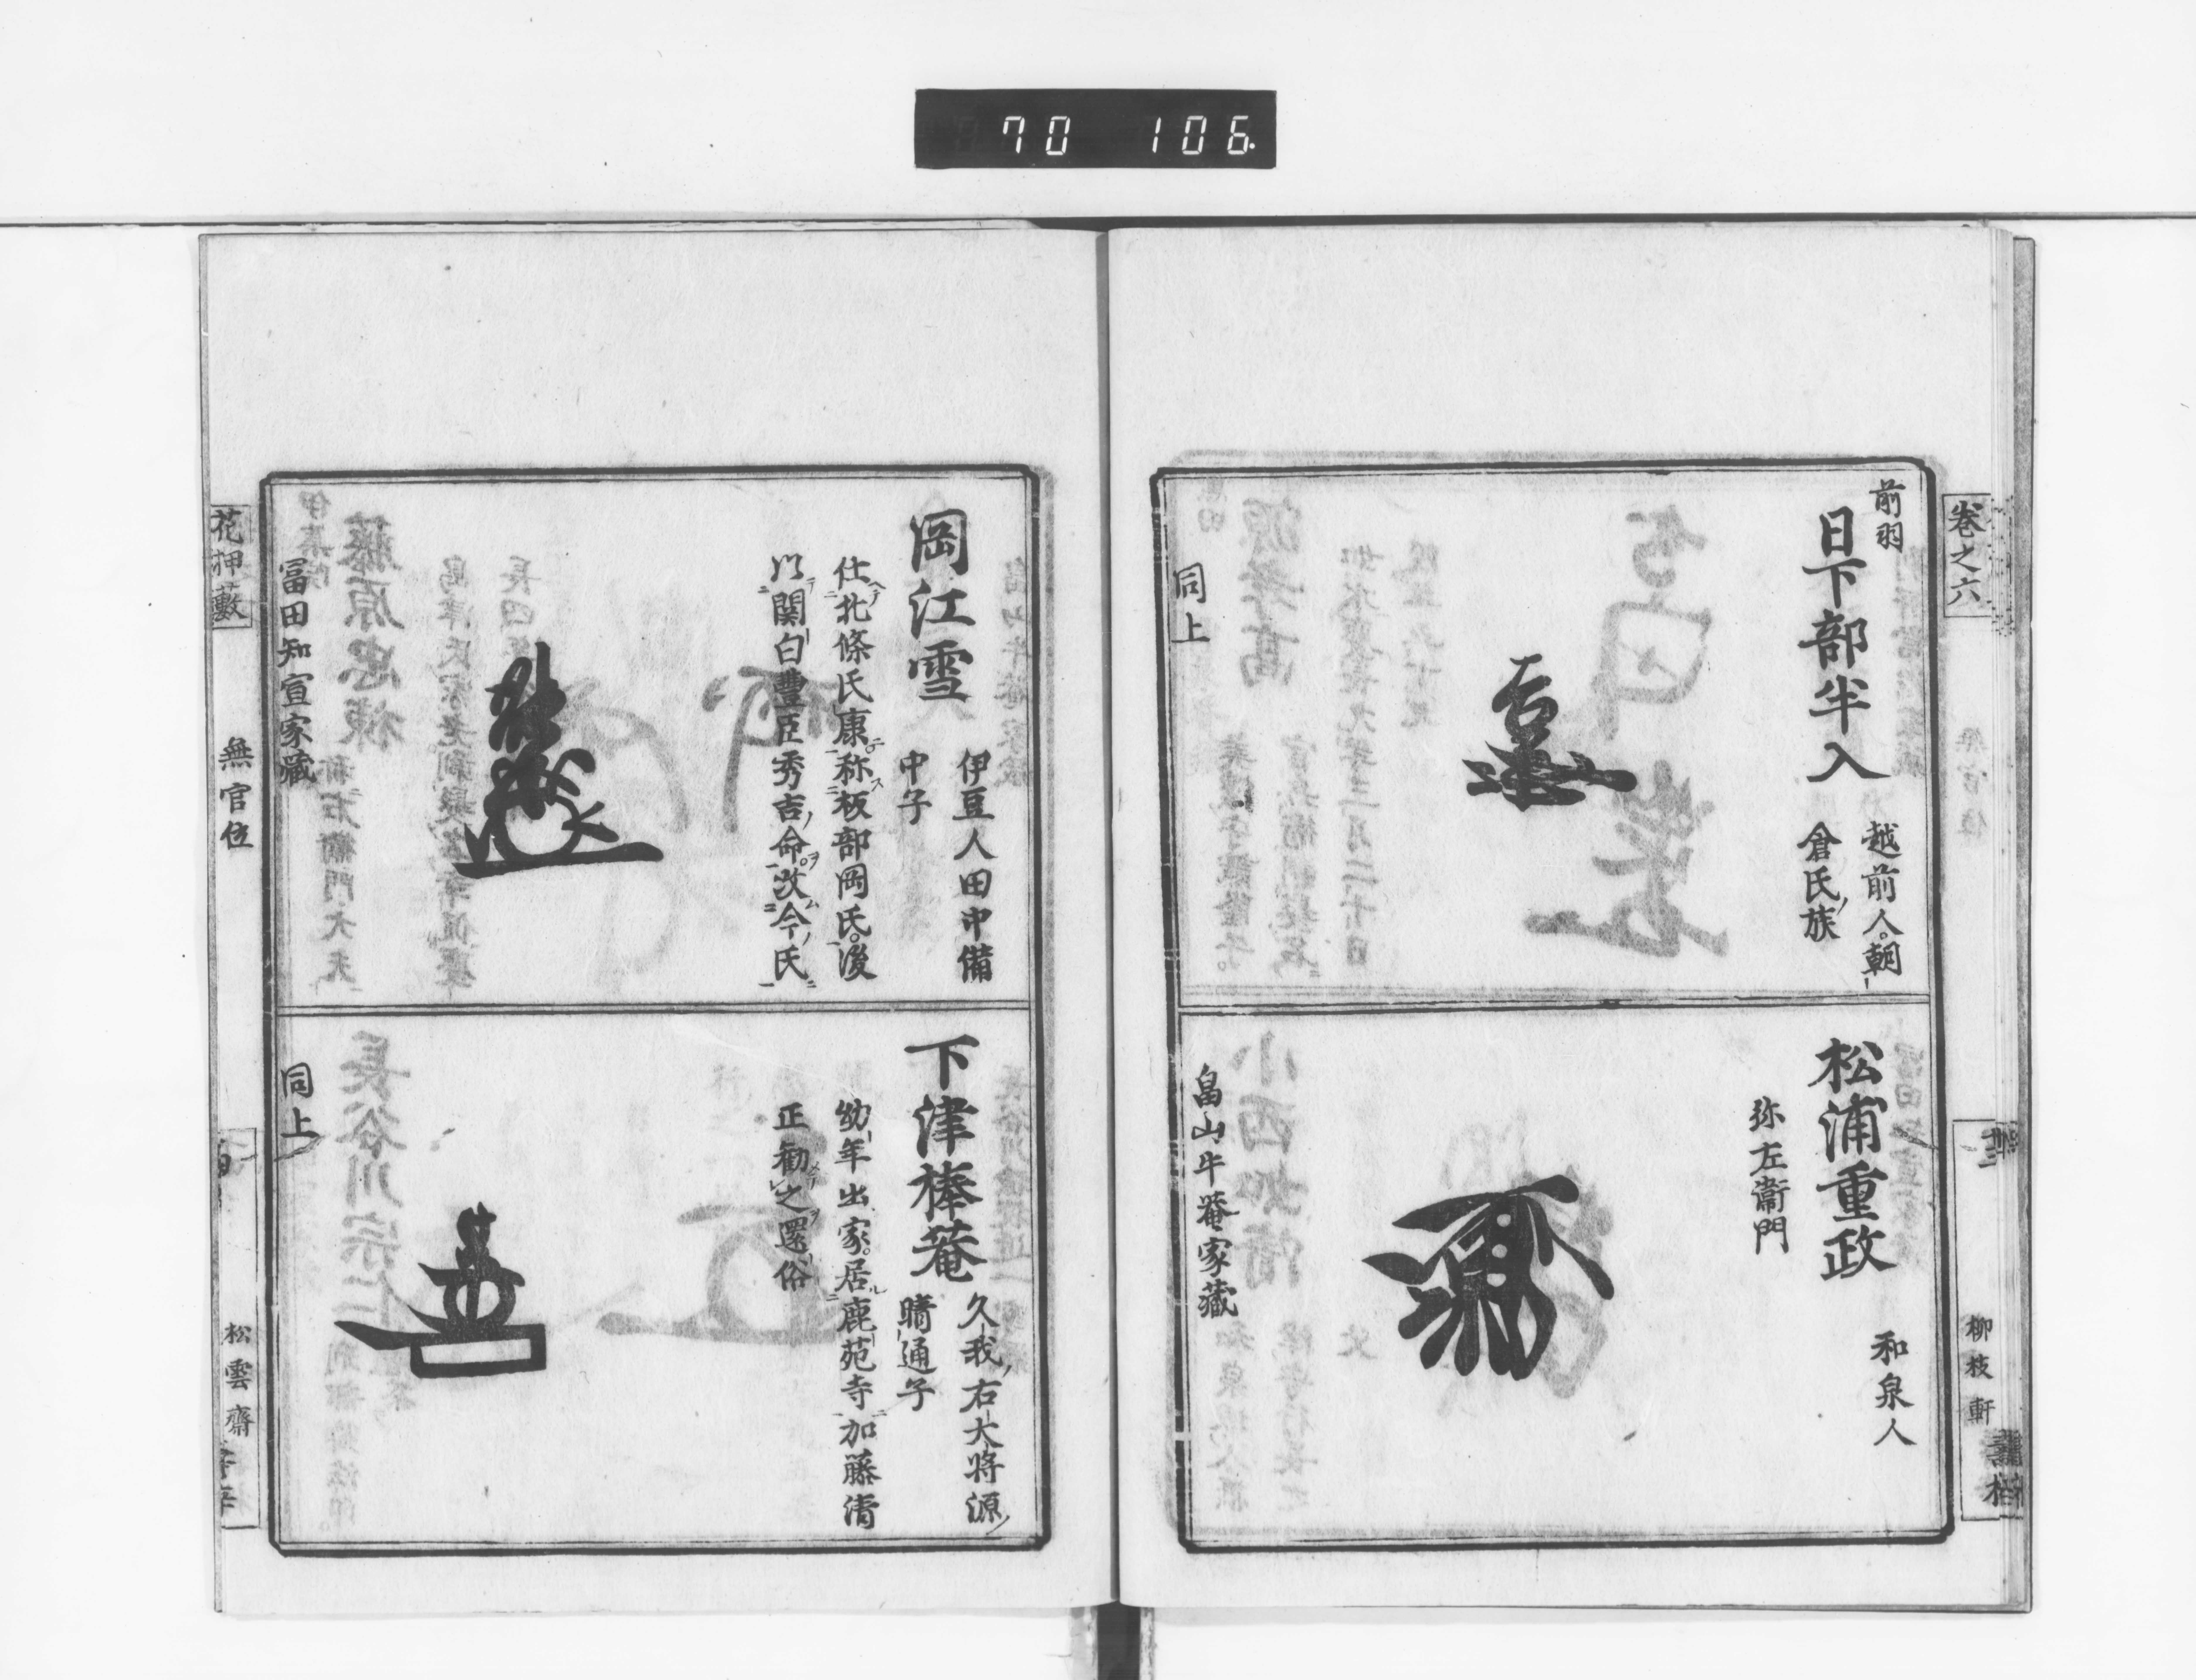 70 106
巻之六
柳枝軒
前羽
日下部半入
越前人。朝
倉氏族
同上
松浦重政
和泉人
弥左衞門
畠山牛菴家藏
岡江雪
伊豆人田中備
中子
仕北條氏康。称板部岡氏。後
以関白豊臣秀吉命。改今氏
冨田知宣家藏
下津棒菴
久我右大將源
晴通子
幼年出家。居鹿苑寺。加藤清
正勧之還俗
同上
花押藪
無官位
松雲齋